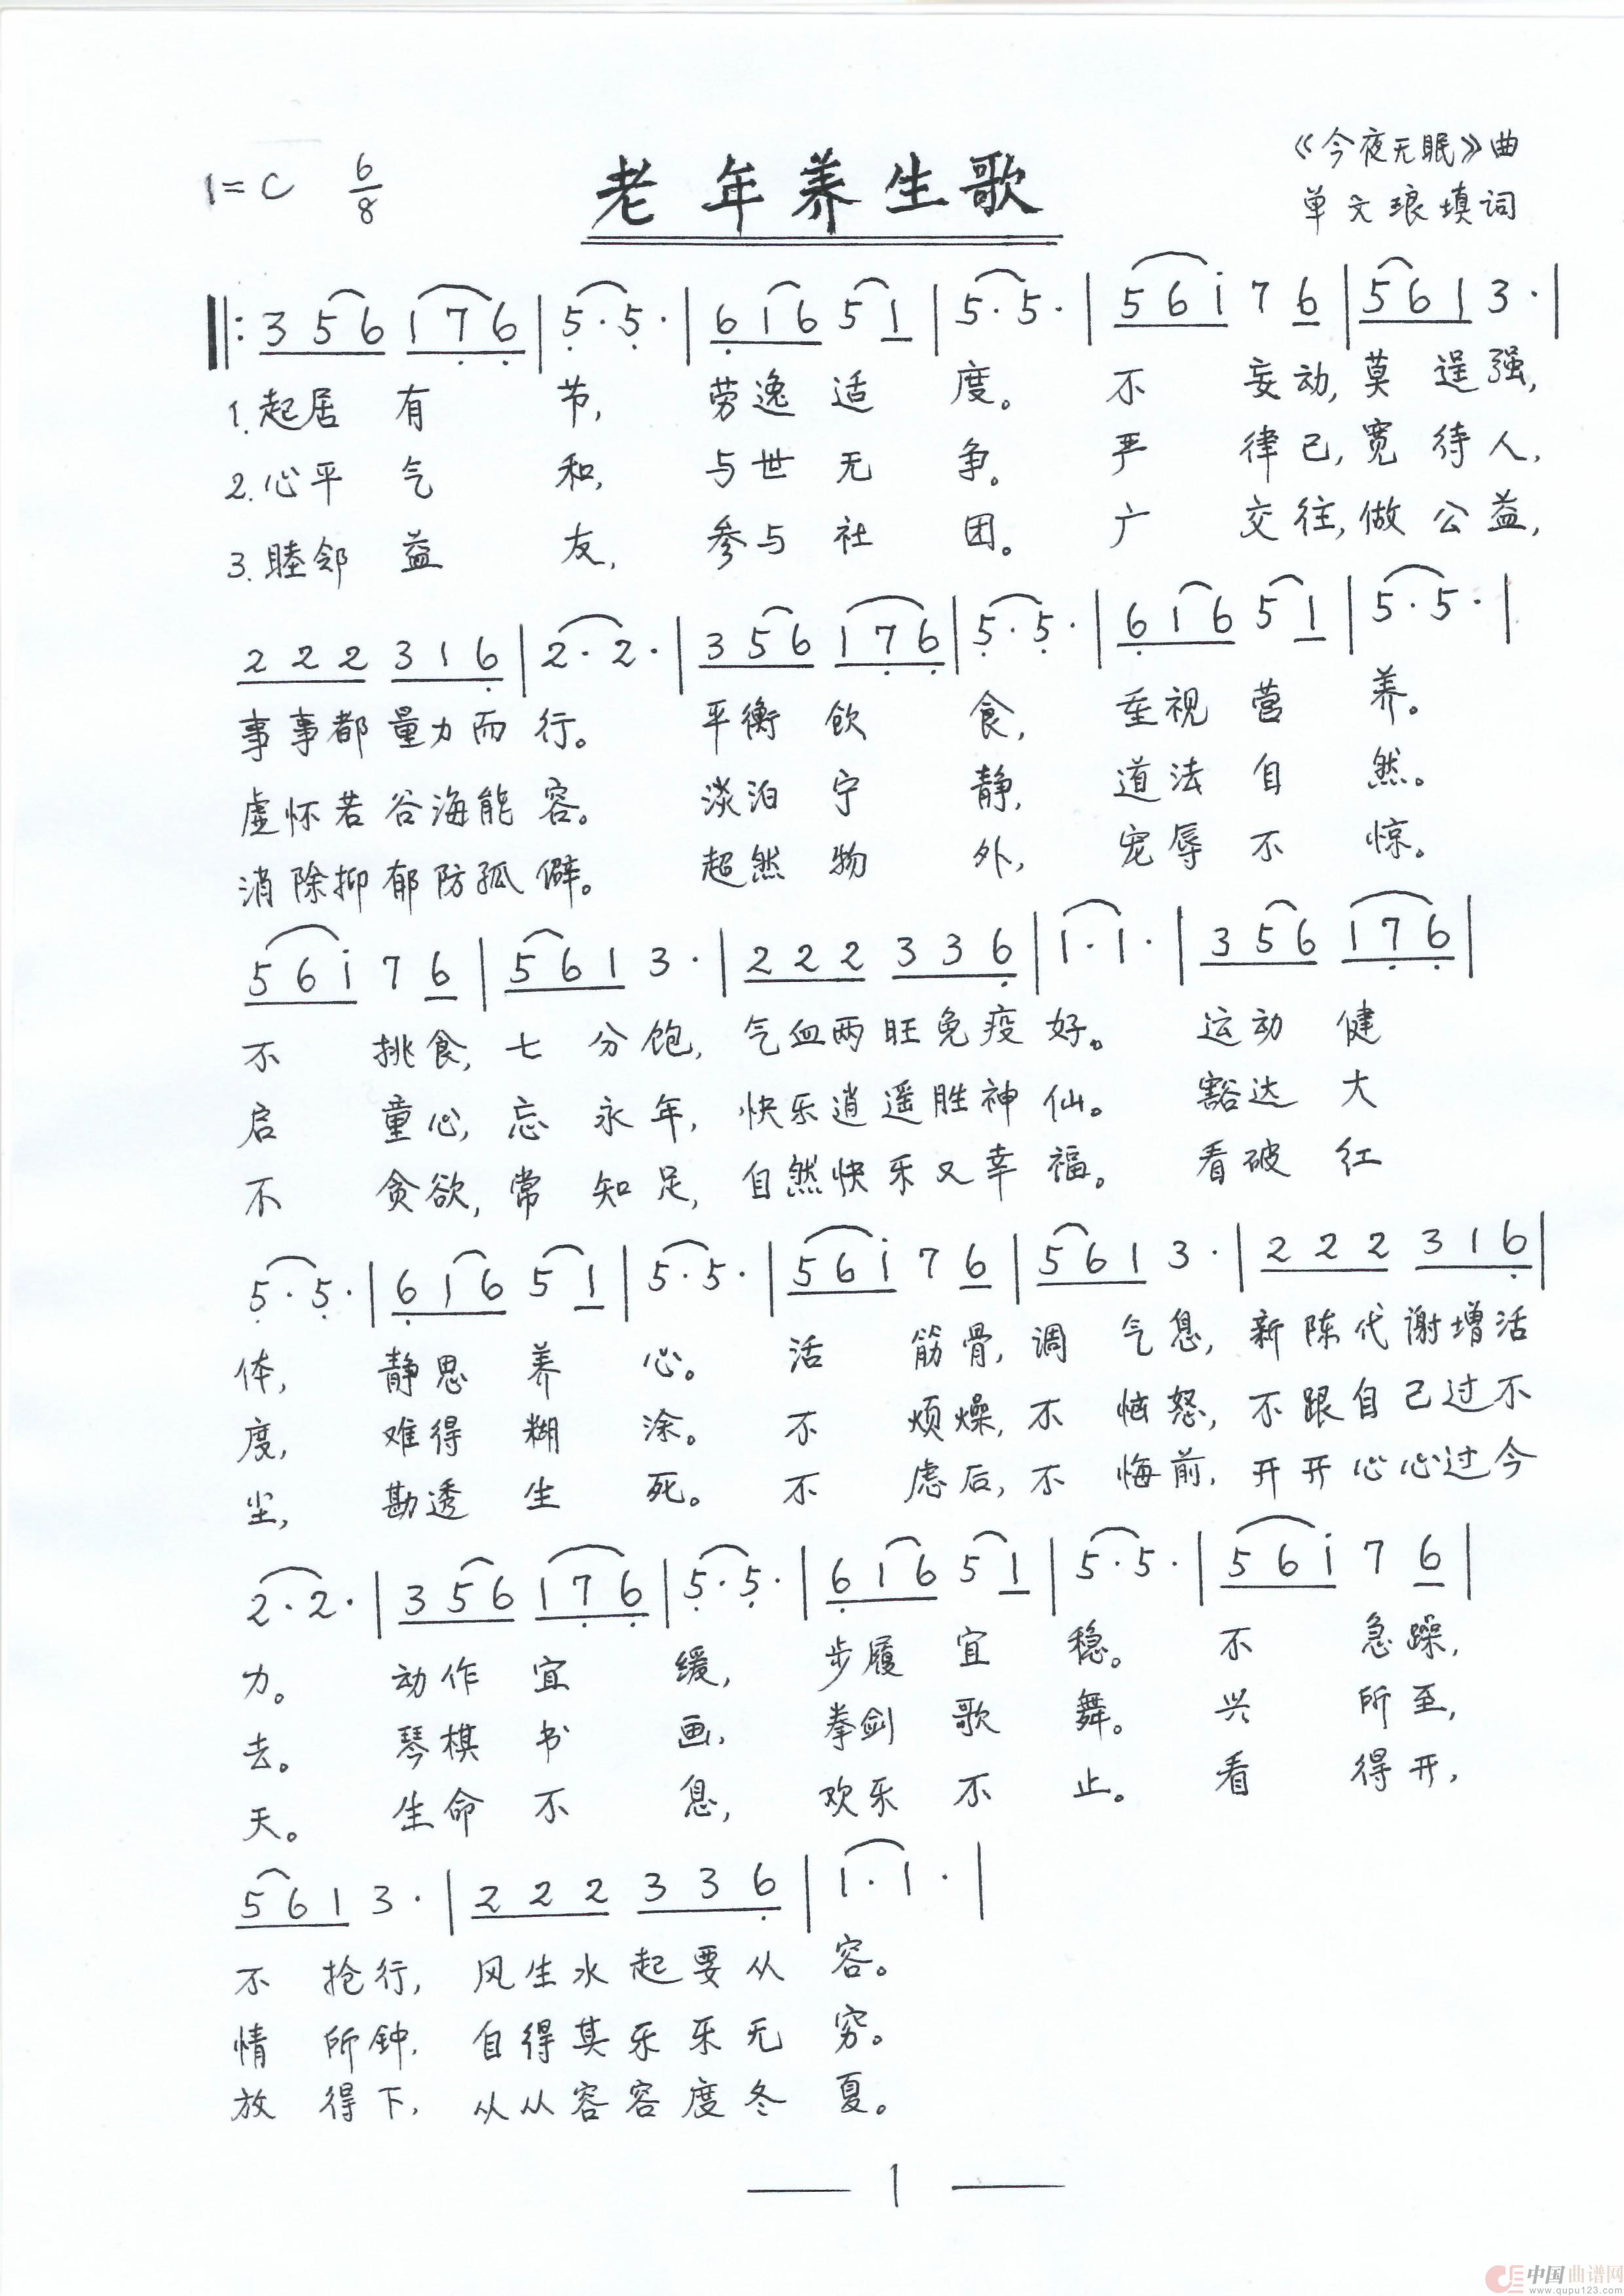 1=C 6/8
老年养生歌
《今夜无眠》曲
单文琅填词
‖: 3 5 6 1 7̣ 6̣ | 5̣· 5̣· | 6̣ 1 6 5 1 | 5· 5· | 5 6 i 7 6 | 5 6 1 3· |
1.起居有节,劳逸适度。不妄动,莫逞强,
2.心平气和,与世无争。严律己,宽待人,
3.睦邻益友,参与社团。广交往,做公益,
2 2 2 3 1 6̣ | 2· 2· | 3 5 6 1 7̣ 6̣ | 5̣· 5̣· | 6̣ 1 6 5 1 | 5· 5· |
事事都量力而行。平衡饮食,重视营养。
虚怀若谷海能容。淡泊宁静,道法自然。
消除抑郁防孤僻。超然物外,宠辱不惊。
5 6 i 7 6 | 5 6 1 3· | 2 2 2 3 3 6̣ | 1· 1· | 3 5 6 1 7̣ 6̣ |
不挑食,七分饱,气血两旺免疫好。运动健
启童心,忘永年,快乐逍遥胜神仙。豁达大
不贪欲,常知足,自然快乐又幸福。看破红
5̣· 5̣· | 6̣ 1 6 5 1 | 5· 5· | 5 6 i 7 6 | 5 6 1 3· | 2 2 2 3 1 6̣ |
体,静思养心。活筋骨,调气息,新陈代谢增活
度,难得糊涂。不烦燥,不恼怒,不跟自己过不
尘,勘透生死。不虑后,不悔前,开开心心过今
2· 2· | 3 5 6 1 7̣ 6̣ | 5̣· 5̣· | 6̣ 1 6 5 1 | 5· 5· | 5 6 i 7 6 |
力。动作宜缓,步履宜稳。不急躁,
去。琴棋书画,拳剑歌舞。兴所至,
天。生命不息,欢乐不止。看得开,
5 6 1 3· | 2 2 2 3 3 6̣ | 1· 1· |
不抢行,风生水起要从容。
情所钟,自得其乐乐无穷。
放得下,从从容容度冬夏。
— 1 —
中国曲谱网
www.qupu123.com